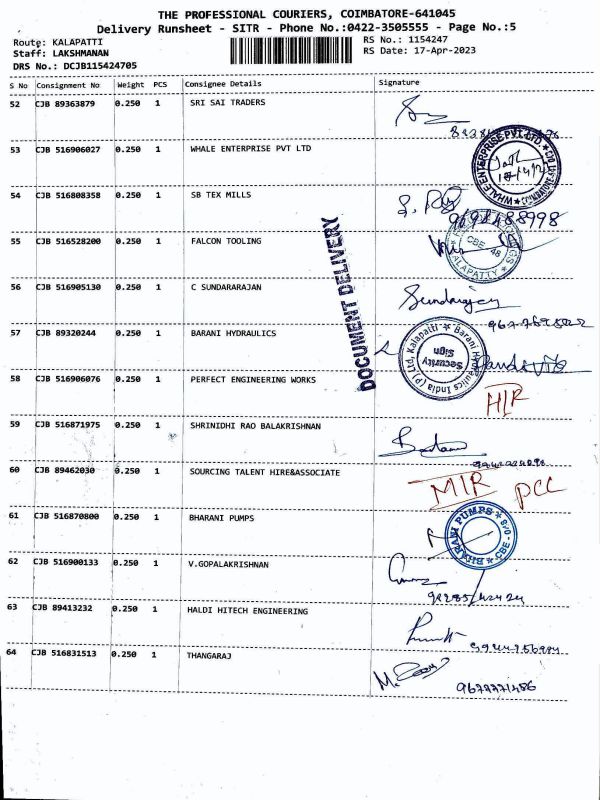 THE PROFESSIONAL COURIERS, COIMBATORE-641045
Delivery Runsheet - SITR - Phone No.:0422-3505555 - Page No.:5
Route: KALAPATTI RS No.: 1154247
Staff: LAKSHMANAN RS Date: 17-Apr-2023
DRS No.: DCJB115424705
S No Consignment No Weight PCS Consignee Details Signature
52 CJB 89363879 0.250 1 SRI SAI TRADERS
53 CJB 516906027 0.250 1 WHALE ENTERPRISE PVT LTD
WHALE ENTERPRISE PVT LTD.
54 CJB 516808358 0.250 1 SB TEX MILLS
55 CJB 516528200 0.250 1 FALCON TOOLING
CBE - 48
KALAPATTY
DOCUMENT DELIVERY
56 CJB 516905130 0.250 1 C SUNDARARAJAN
Sundarajan
57 CJB 89320244 0.250 1 BARANI HYDRAULICS
Barani Hydraulics India (P) Ltd, Kalapatti
Security
Sign
58 CJB 516906076 0.250 1 PERFECT ENGINEERING WORKS
59 CJB 516871975 0.250 1 SHRINIDHI RAO BALAKRISHNAN
60 CJB 89462030 0.250 1 SOURCING TALENT HIRE&ASSOCIATE
MIR PCC
61 CJB 516870800 0.250 1 BHARANI PUMPS
BHARANI PUMPS
62 CJB 516900133 0.250 1 V.GOPALAKRISHNAN
63 CJB 89413232 0.250 1 HALDI HITECH ENGINEERING
64 CJB 516831513 0.250 1 THANGARAJ